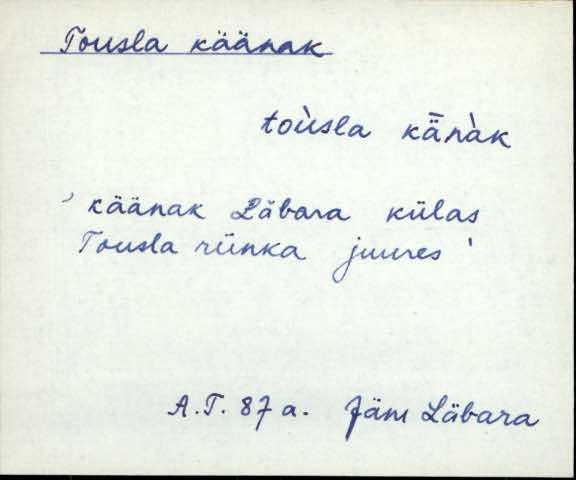 Tousla käänak
toùsla kǟnàk
‘käänak Läbara külas
Tousla rünka juures’
A.T. 87 a. Jäm Läbara